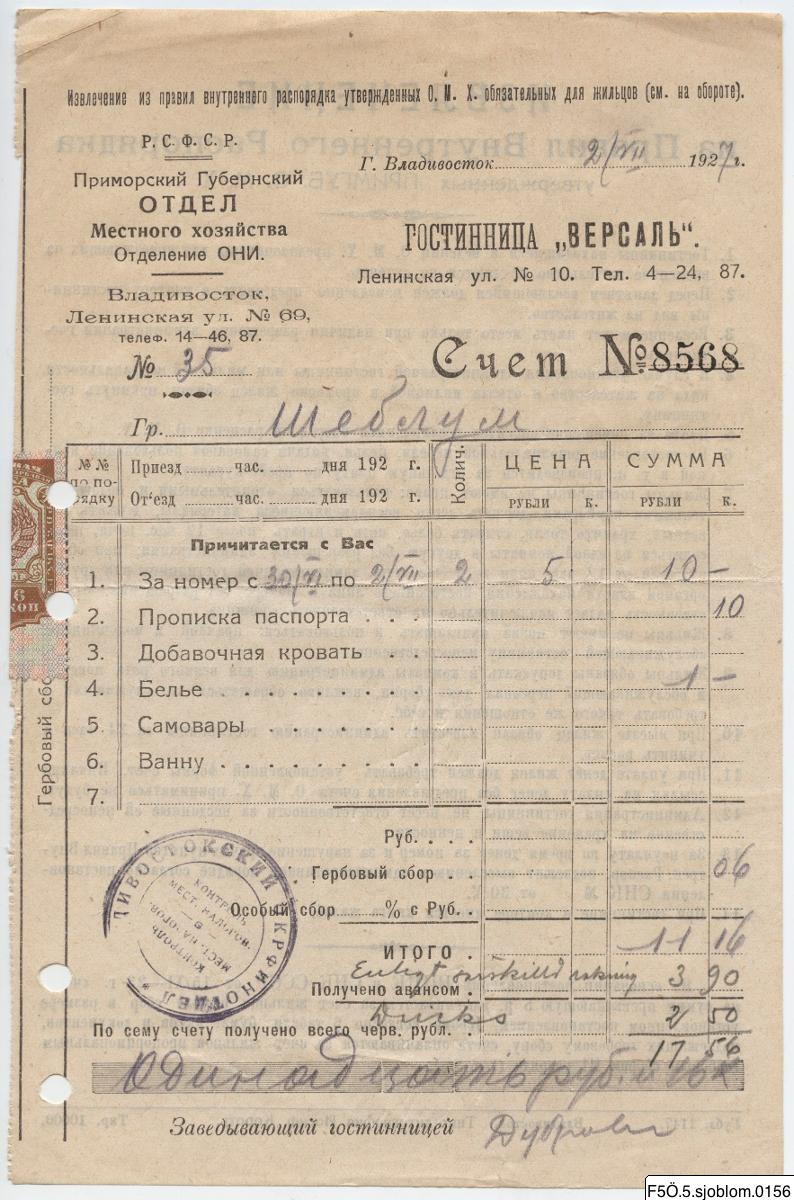 Извлечение из правил внутреннего распорядка утвержденных О. М. Х. обязательных для жильцов (см. на обороте).
Р. С. Ф. С. Р.
Приморский Губернский
ОТДЕЛ
Местного хозяйства
Отделение ОНИ.
Владивосток,
Ленинская ул. № 69,
телеф. 14—46, 87.
№ 35
Г. Владивосток 2/VII 1927 г.
ГОСТИННИЦА „ВЕРСАЛЬ“.
Ленинская ул. № 10. Тел. 4—24, 87.
Счет № 8568
Гр. Шеблум
№№ по по-рядку
Приезд час. дня 192 г.
От'езд час. дня 192 г.
Колич.
ЦЕНА
РУБЛИ К.
СУММА
РУБЛИ К.
Причитается с Вас
1. За номер с 30/VI по 2/VII 2 5 10 —
2. Прописка паспорта . . . 10
3. Добавочная кровать . . .
4. Белье . . . . . . . . . 1 —
5. Самовары . . . . . . . .
6. Ванну . . . . . . . . .
7.
Руб. . . .
Гербовый сбор . . 06
Особый сбор % с Руб. .
ИТОГО . 11 16
Enligt särskild räkning 3 90
Получено авансом .
Dricks 2 50
По сему счету получено всего черв. рубл. .
17 56
Одинадцать руб. и 16 к
Заведывающий гостинницей
Гербовый сбо
6
КОП
ДИВОСТОКСКИЙ ОКРФИНОТДЕЛ
КОНТРОЛЬ
МЕСТ. НАЛОГОВ.
— 6 —
МЕСТ. НАЛОГОВ.
КОНТРОЛЬ
F5Ö.5.sjoblom.0156